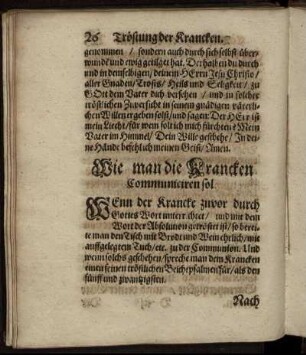 26 Tröstung der Krancken.
genommen / sondern auch durch sich selbst über-
wunden und ewig getilget hat. Derhalben du durch
und in demselbigen / deinem HErrn Jesu Christo /
aller Gnaden / Trosts / Heils und Seligkeit / zu
GOtt dem Vater dich versehen / und zu solcher
tröstlichen Zuversicht in seinem gnädigen väterli-
chen Willen ergeben solst / und sagen: Der HErr ist
mein Liecht / für wem solt ich mich fürchten? Mein
Vater im Himmel / Dein Wille geschehe / In dei-
ne Hände befehl ich meinen Geist / Amen.
Wie man die Krancken
Communiciren sol.
WEnn der Krancke zuvor durch
Gottes Wort unterrichtet / und mit dem
Wort der Absolution getröstet ist / so berei-
te man den Tisch mit Brodt und Wein ehrlich / mit
auffgelegtem Tuch / etc. zu der Communion. Und
wenn solchs geschehen / spreche man dem Krancken
einen feinen tröstlichen Beichtpsalmen für / als den
fünff und zwantzigsten.
Nach